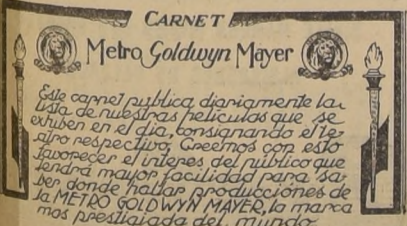 CARNET
Metro Goldwyn Mayer
Este carnet publica diariamente la
lista de nuestras peliculas que se
exhiben en el dia, consignando el te-
atro respectivo. Creemos con esto
favorecer el interes del público que
tendrá mayor facilidad para sa-
ber donde hallar producciones de
la METRO GOLDWYN MAYER, la marca
mas prestigiada del mundo